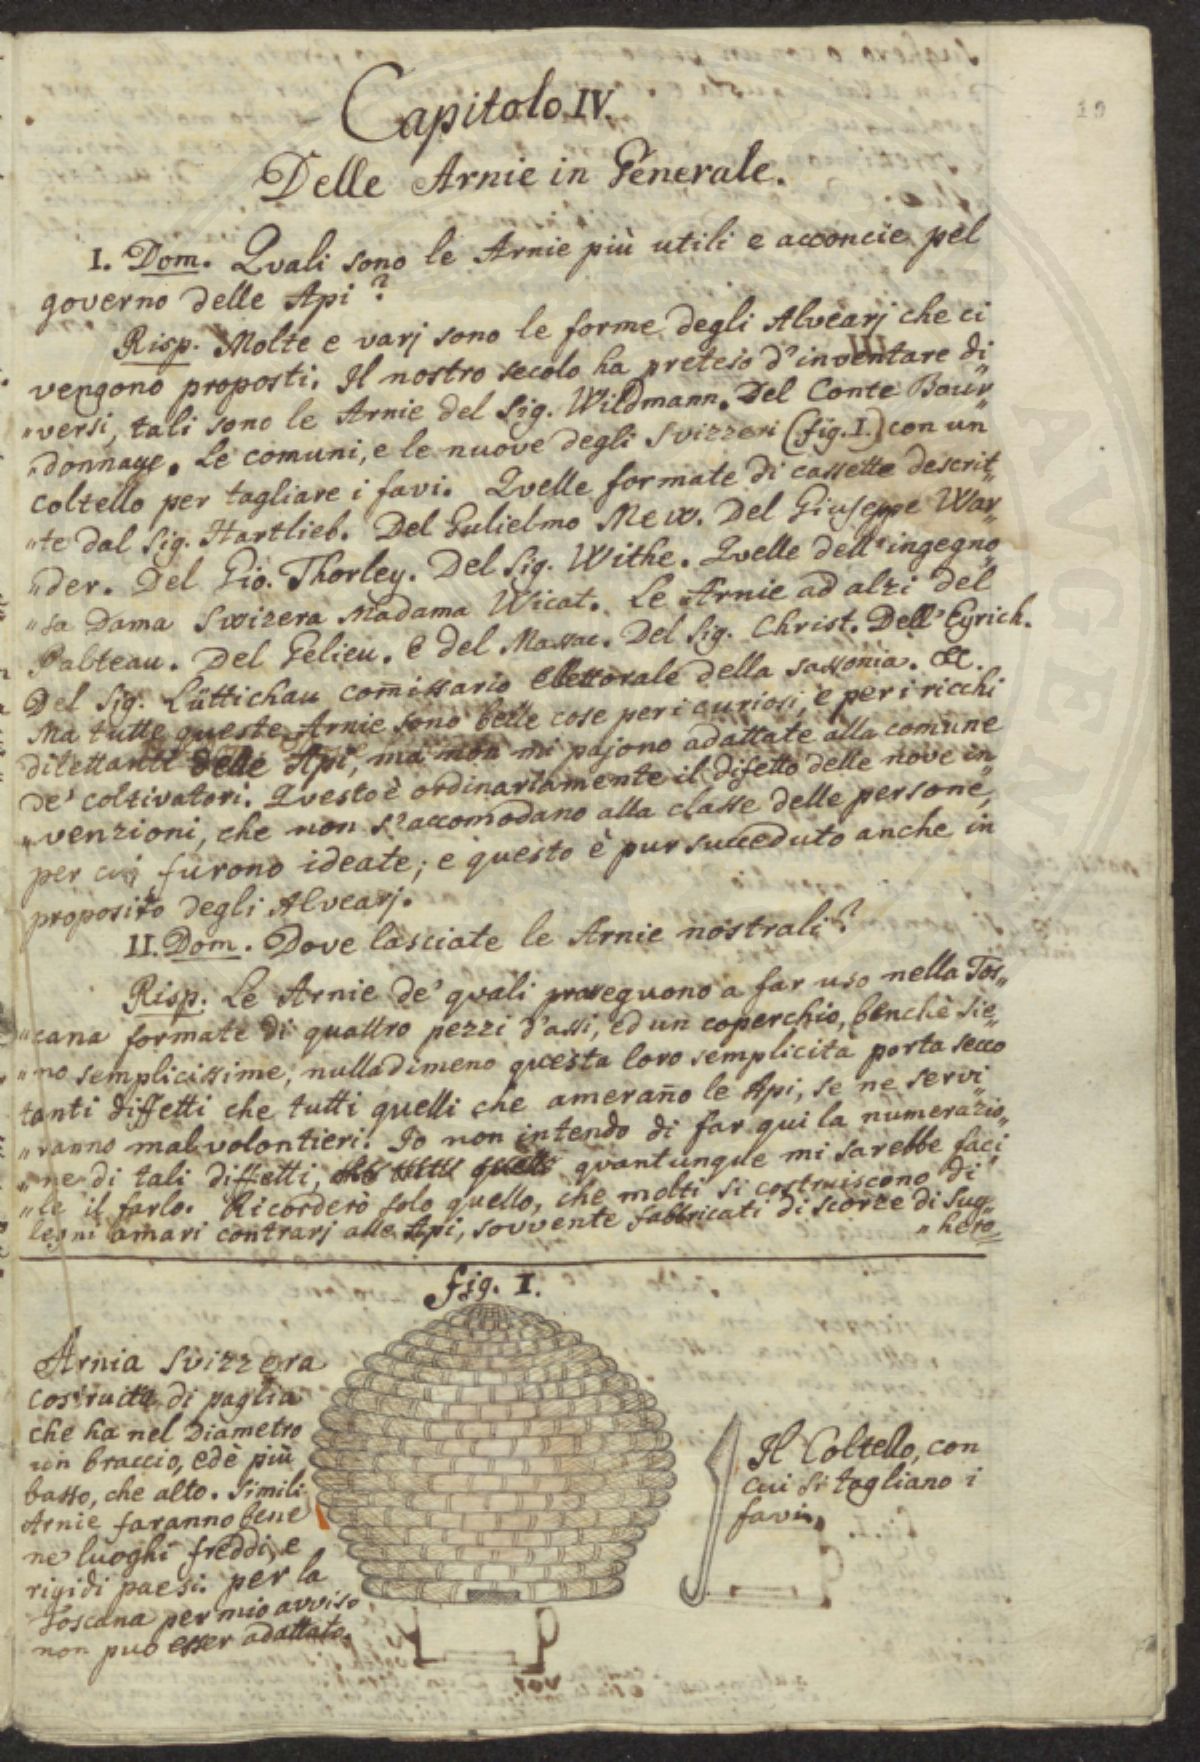 19
Capitolo IV.
Delle Arnie in Generale.
I. Dom. Quali sono le Arnie più utili e acconcie pel
governo delle Api?
Risp. Molte e varj sono le forme degli Alvearj che ci
vengono proposti. Il nostro secolo ha preteso d'inventare di„
„versi, tali sono le Arnie del Sig. Wildmann. Del Conte Bour„
„donnaye. Le comuni, e le nuove degli Svizzeri (fig. I.) con un
coltello per tagliare i favi. Quelle formate di cassette descrit„
„te dal Sig. Hartlieb. Del Gulielmo Mew. Del Giuseppe War„
„der. Del Gio. Thorley. Del Sig. Withe. Quelle dell'ingegno„
„sa Dama Swizera Madama Wicat. Le Arnie ad alzi del
Palteau. Del Gelieu. e del Massac. Del Sig. Christ. Dell'Eyrich.
Del Sig. Lüttichau com̃issario Elettorale della Sassonia. &c.
Ma tutte queste Arnie sono belle cose per i curiosi, e per i ricchi
dilettanti delle Api, ma non mi pajono adattate alla comune
de' coltivatori. Questo è ordinariamente il difetto delle nove in„
„venzioni, che non s'accomodano alla classe delle persone,
per cui furono ideate; e questo è pur succeduto anche in
proposito degli Alvearj.
II. Dom. Dove lasciate le Arnie nostrali?
Risp. Le Arnie de' quali proseguono a far uso nella Tos„
„cana formate di quattro pezzi d'assi, ed un coperchio, benchè sie„
„no semplicissime, nulladimeno questa loro semplicità porta secco
tanti diffetti che tutti quelli che amerañ o le Api, se ne servi„
„ranno mal volontieri. Io non intendo di far qui la numerazio„
„ne di tali diffetti, quantunque mi sarebbe faci„
„le il farlo. Ricorderò solo quello, che molti si costruiscono di
legni amari contrarj alle Api, sovvente fabbricati di scorze di Sug„
„hero
fig. I.
Arnia Svizzera
costrutta di paglia
che ha nel Diametro
un braccio, ed è più
basso, che alto. Simili
Arnie faranno bene
ne luoghi freddi, e
rigidi paesi. per la
Toscana per mio avviso
non può esser adattato.
Il Coltello, con
cui si tagliano i
favi.